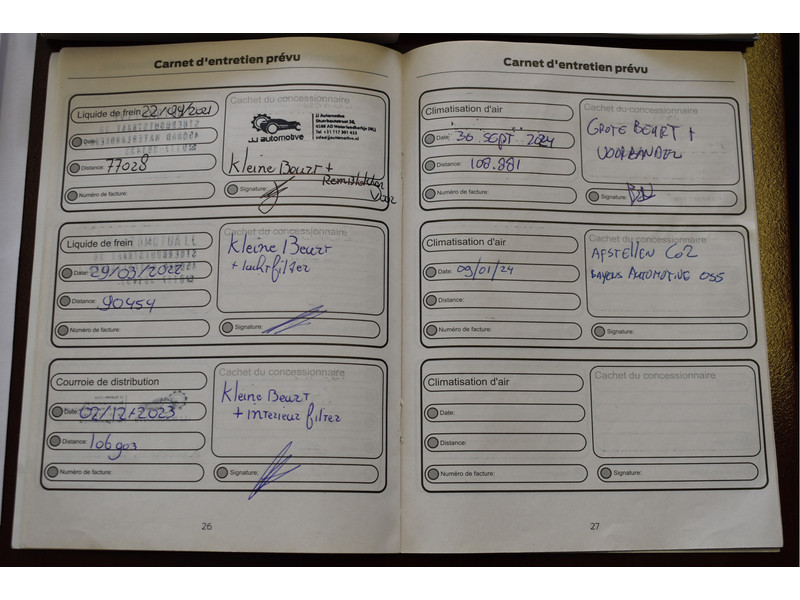 Carnet d'entretien prévu
Liquide de frein 22/04/2021
Cachet du concessionnaire
JJ automotive
JJ Automotive
Tel +31 117 391 433
Date:
Distance: 77028
Kleine Beurt +
Remblokken
Voor
Numéro de facture:
Signature:
Liquide de frein
Cachet du concessionnaire
Kleine Beurt
+ luchtfilter
Date: 29/03/2022
Distance: 90454
Numéro de facture:
Signature:
Courroie de distribution
Cachet du concessionnaire
Kleine Beurt
+ interieur filter
Date: 02/12/2023
Distance: 106903
Numéro de facture:
Signature:
26
Carnet d'entretien prévu
Climatisation d'air
Cachet du concessionnaire
GROTE BEURT +
Date: 30 SEPT 2024
Distance: 108.881
Numéro de facture:
Signature:
Climatisation d'air
Cachet du concessionnaire
AFSTELLEN CO2
AUTOMOTIVE OSS
Date: 09/01/24
Distance:
Numéro de facture:
Signature:
Climatisation d'air
Cachet du concessionnaire
Date:
Distance:
Numéro de facture:
Signature:
27